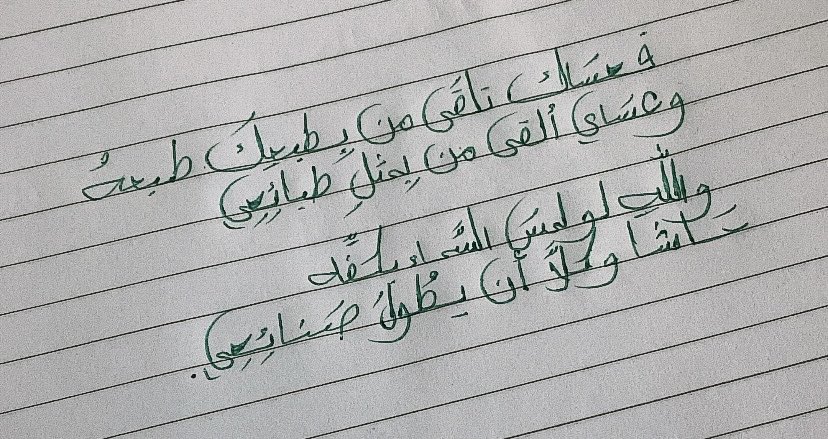 فعساك تلقى من بطبعك طبعهُ
وعساي ألقى من يمثل طبائعي
واللّهِ لو لمسَ السَّماء بكفِّه
حاشا وكلَّا أن يطُولَ صَنائِعِي.